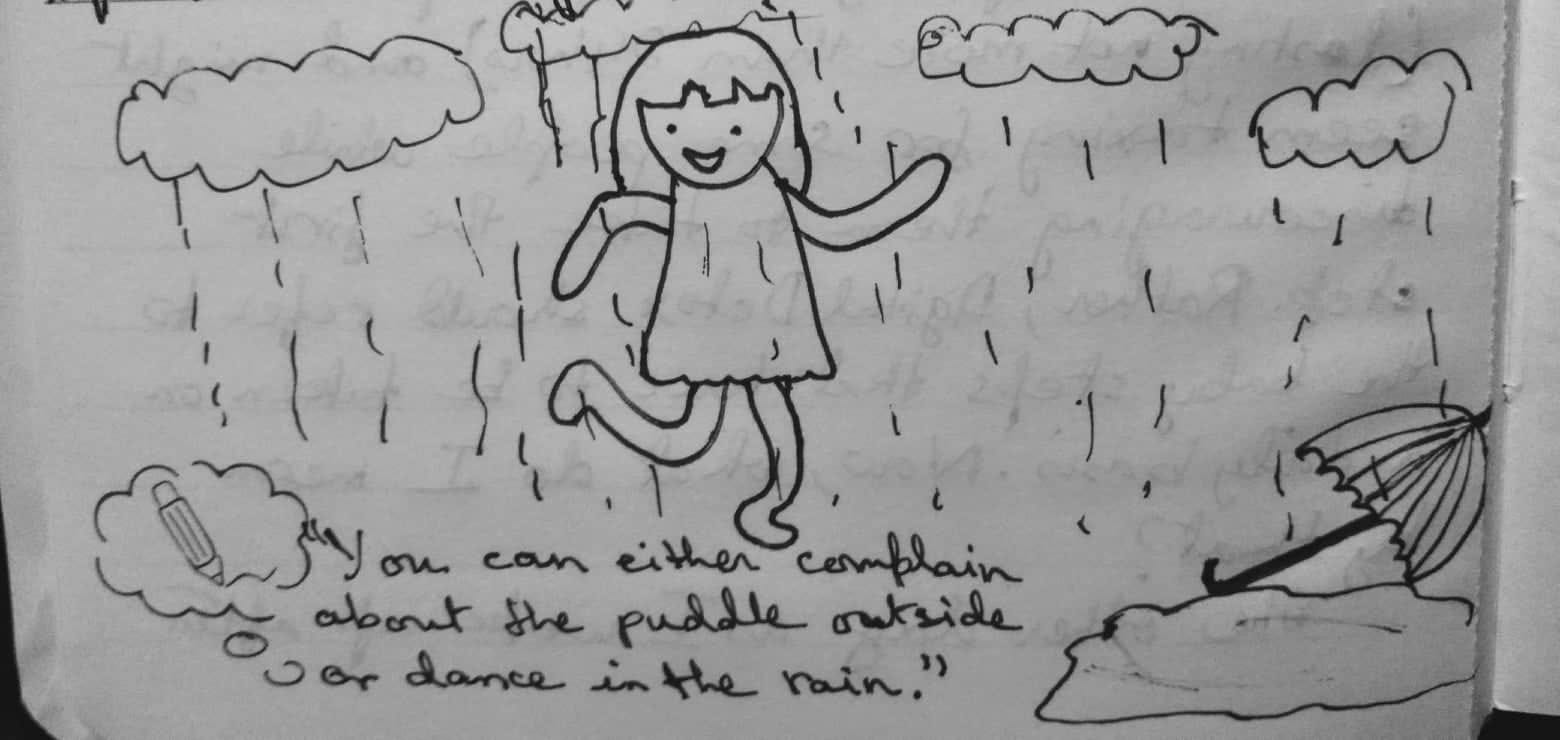 "You can either complain
about the puddle outside
or dance in the rain."